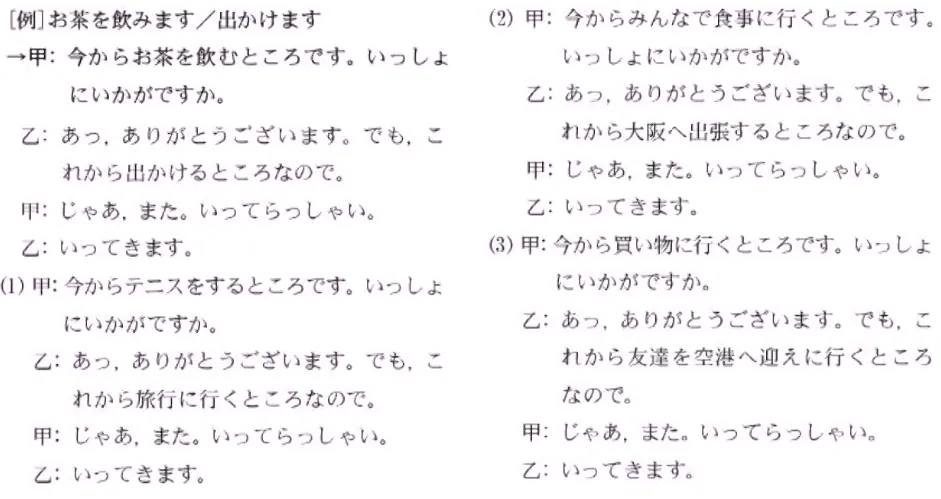 [例]お茶を飲みます／出かけます
→甲：今からお茶を飲むところです。いっしょ
にいかがですか。
乙：あっ，ありがとうございます。でも，こ
れから出かけるところなので。
甲：じゃあ，また。いってらっしゃい。
乙：いってきます。
(1) 甲：今からテニスをするところです。いっしょ
にいかがですか。
乙：あっ，ありがとうございます。でも，こ
れから旅行に行くところなので。
甲：じゃあ，また。いってらっしゃい。
乙：いってきます。
(2) 甲：今からみんなで食事に行くところです。
いっしょにいかがですか。
乙：あっ，ありがとうございます。でも，こ
れから大阪へ出張するところなので。
甲：じゃあ，また。いってらっしゃい。
乙：いってきます。
(3) 甲：今から買い物に行くところです。いっしょ
にいかがですか。
乙：あっ，ありがとうございます。でも，こ
れから友達を空港へ迎えに行くところ
なので。
甲：じゃあ，また。いってらっしゃい。
乙：いってきます。